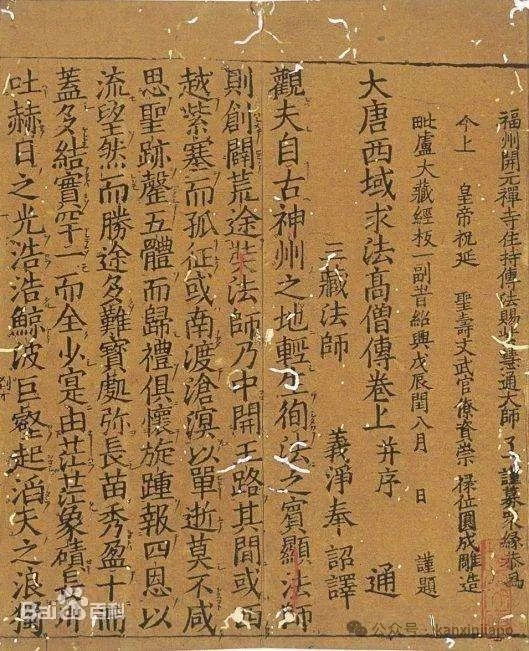 福州開元禪寺住持傳法賜紫慧通大師 了 謹募衆緣恭為
今上 皇帝祝延 聖壽文武官僚資崇 祿位圓成雕造
毗盧大藏經板一副旹紹興戊辰閏八月 日 謹題
大唐西域求法高僧傳卷上 并序 通
三藏法師 義淨奉 詔譯
觀夫自古神州之地輕生徇法之賓顯法師
則創闢荒途奘法師乃中開王路其間或西
越紫塞而孤征或南渡滄溟以單逝莫不咸
思聖跡罄五體而歸禮俱懷旋踵報四恩以
流望然而勝途多難寶處弥長苗秀盈十而
蓋多結實罕一而全少寔由茫茫象磧長川
吐赫日之光浩浩鯨波巨壑起滔天之浪獨
Bai百科
公众号:kanxinjiapo